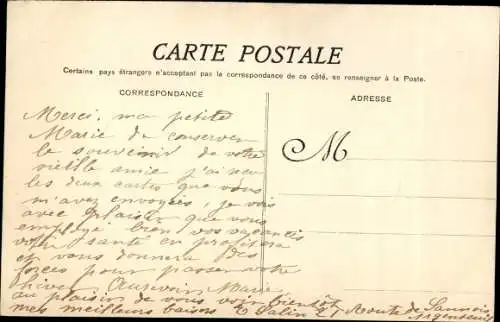 CARTE POSTALE
Certains pays étrangers n'acceptant pas la correspondance de ce côté, se renseigner à la Poste.
CORRESPONDANCE
ADRESSE
M
Merci, ma petite
Marie de conserver
le souvenir de votre
vieille amie j'ai reçu
les deux cartes que vous
m'avez envoyées, je vois
avec plaisir que vous
employé bien vos vacances
votre santé en profitera
et vous donnera des
forces pour passer votre
hiver Aurevoir Marie
au plaisir de vous voir bientôt
mes meilleurs baisers Salin 21 Route de Sannois
Argenteuil